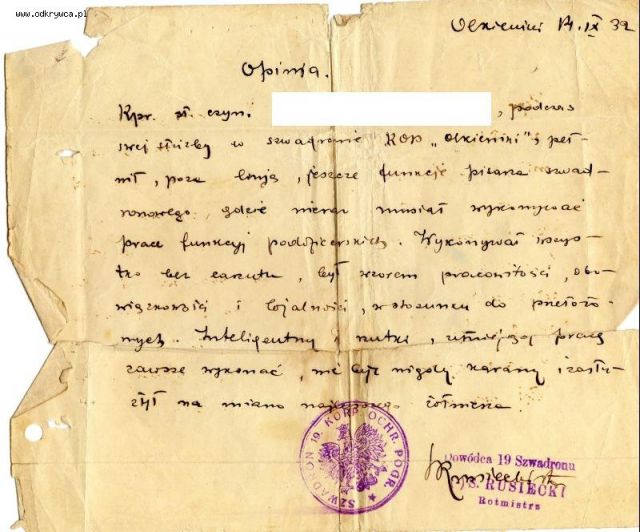 www.odkrywca.pl
Olkieniki 14.IX 32
Opinia.
Kpr. st. czyn. , podczas
swej służby w szwadronie KOP „Olkieniki”, peł-
nił, poza linją, jeszcze funkcje pisarza szwad-
ronowego, gdzie nieraz musiał wykonywać
prace funkcyj podoficerskich. Wykonywał wszys-
tko bez zarzutu, był wzorem pracowitości, obo-
wiązkowości i lojalności, w stosunku do przełożo-
nych. Inteligentny i pracę
zawsze wykonać, nie był nigdy karany i zasłu-
żył na miano żołnierza
SZWADRON 19. KORP. OCHR. POGR.
Dowódca 19 Szwadronu
S. RUSIECKI
Rotmistrz